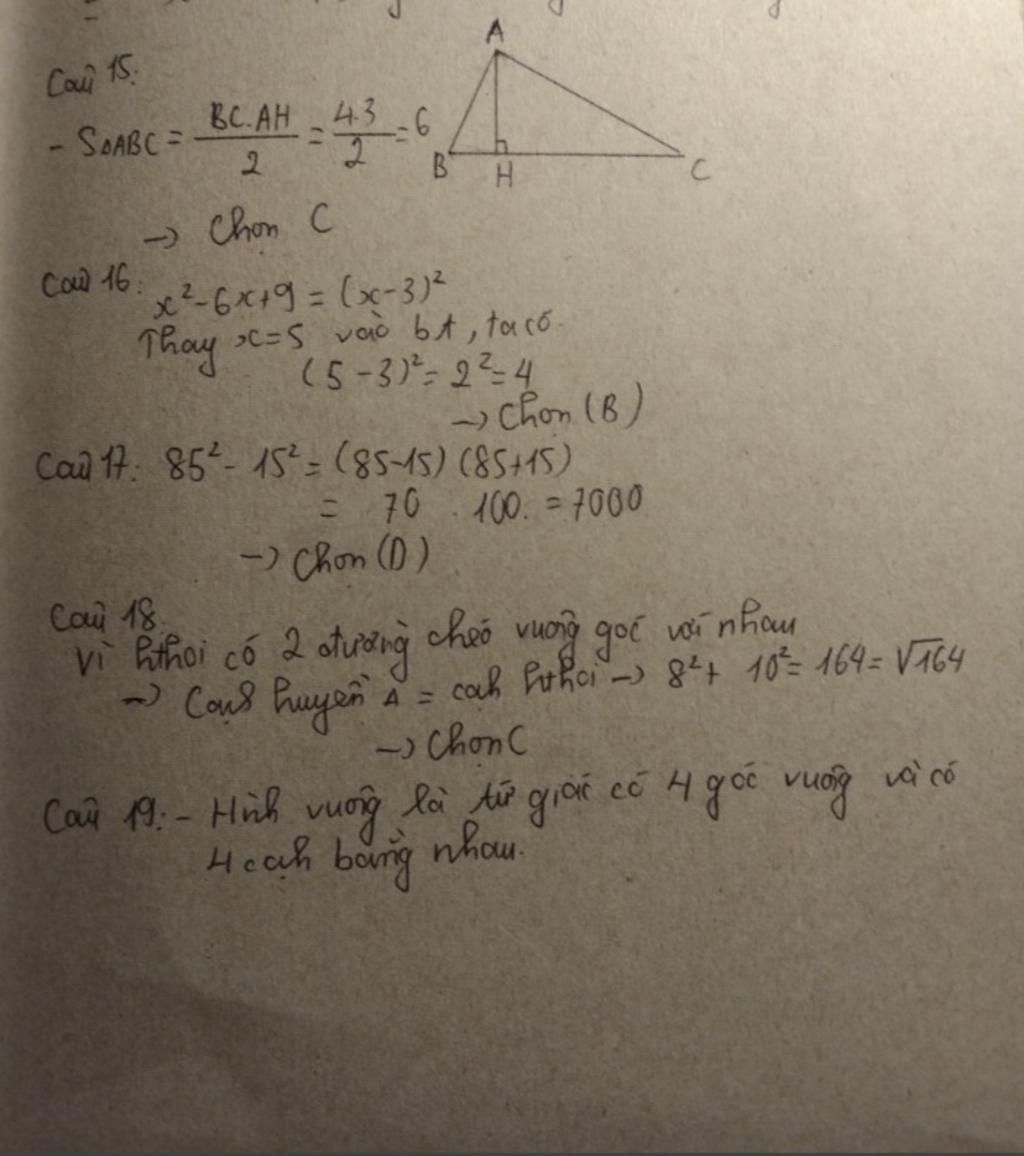 Câu 15:
- SΔABC = BC.AH / 2 = 4.3 / 2 = 6
A
B
H
C
→ Chọn C
Câu 16: x² - 6x + 9 = (x - 3)²
Thay x = 5 vào bt, ta có
(5 - 3)² = 2² = 4
→ Chọn (B)
Câu 17: 85² - 15² = (85 - 15) (85 + 15)
= 70 . 100. = 7000
→ Chọn (D)
Câu 18.
Vì hthoi có 2 đường chéo vuông góc với nhau
→ Cạnh huyền Δ = cạh hthoi → 8² + 10² = 164 = √164
→ Chọn C
Câu 19: - Hìh vuông là tứ giác có 4 góc vuông và có
4 cạh bằng nhau.